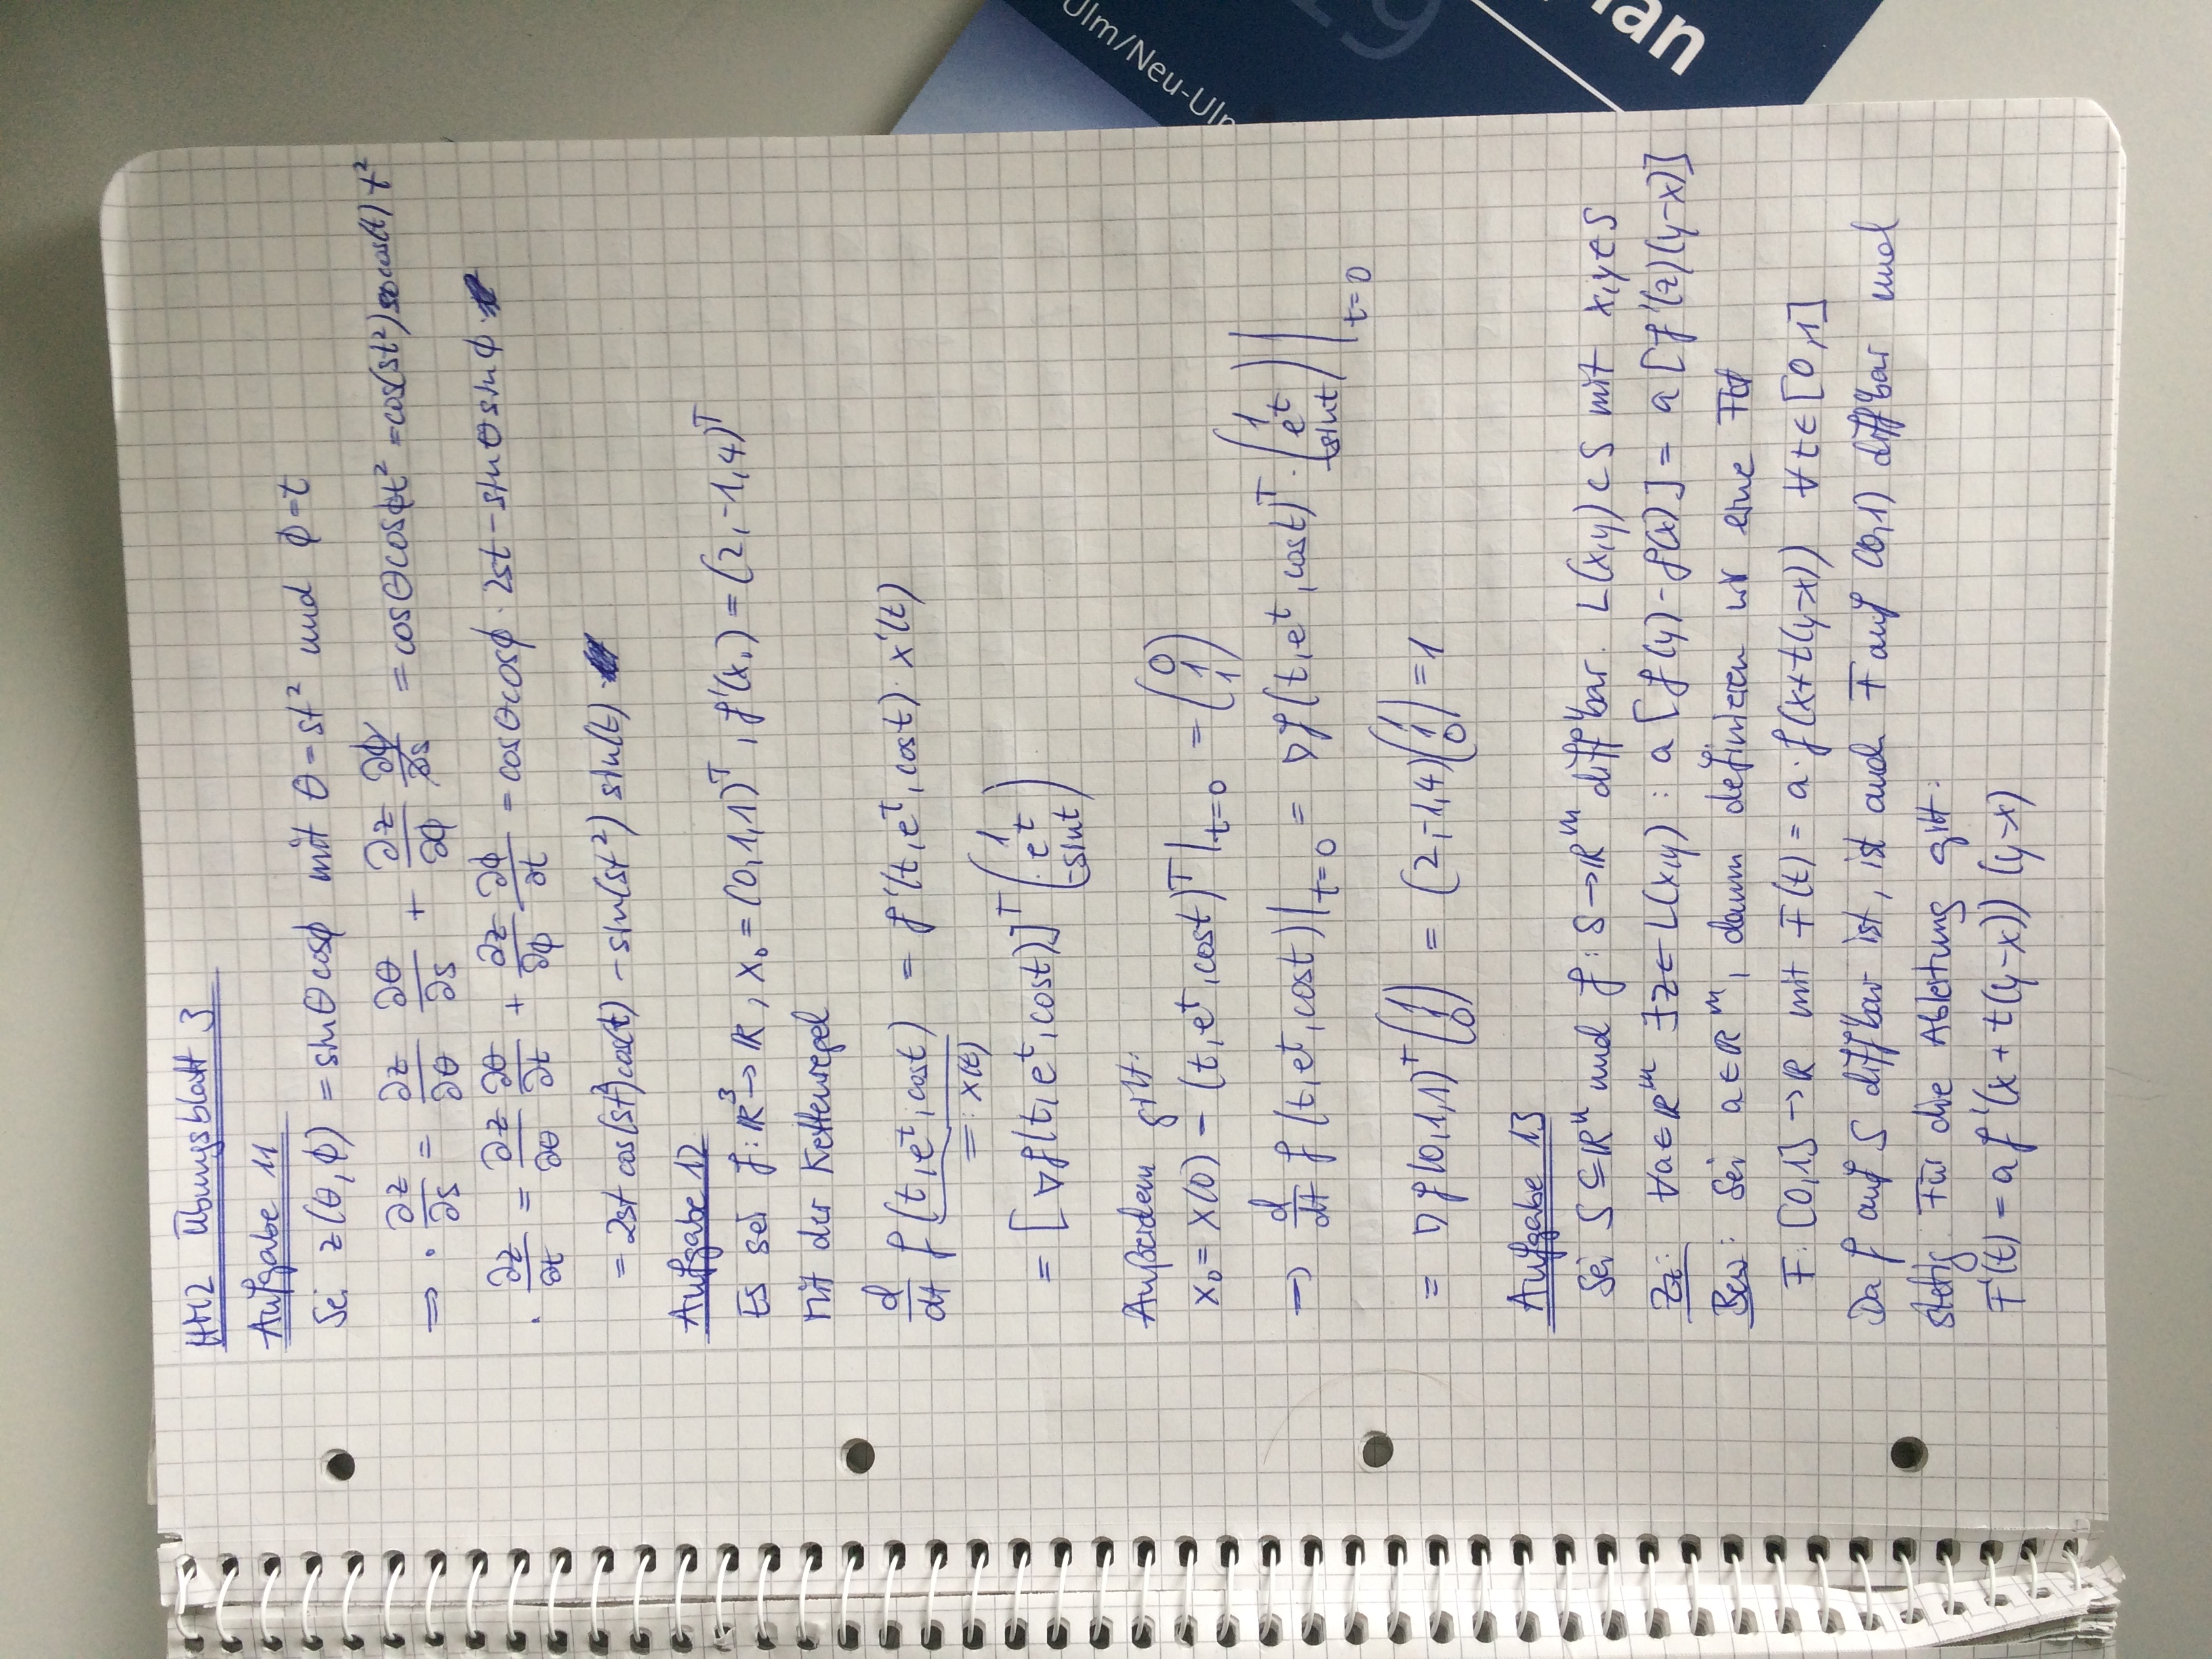 HM2 Übungsblatt 3
Aufgabe 11
Sei z(θ,ϕ) = sinθcosϕ mit θ=st² und ϕ=t
⇒ · ∂z/∂s = ∂z/∂θ ∂θ/∂s + ∂z/∂ϕ ∂ϕ/∂s = cosθcosϕt² = cos(st²)cos(t) t²
· ∂z/∂t = ∂z/∂θ ∂θ/∂t + ∂z/∂ϕ ∂ϕ/∂t = cosθcosϕ · 2st − sinθsinϕ
= 2st cos(st²)cos(t) − sin(st²) sin(t)
Aufgabe 12
Es sei f: ℝ³→ℝ, x₀ = (0,1,1)ᵀ, f'(x₀) = (2,-1,4)ᵀ
Mit der Kettenregel
d/dt f(t,eᵗ,cost) = f'(t,eᵗ,cost) · x'(t)
=: x(t)
= [∇f(t,eᵗ,cost)]ᵀ (1 eᵗ -sint)
Außerdem gilt:
x₀ = x(0) = (t,eᵗ,cost)ᵀ|t=0 = (0 1 1)
→ d/dt f(t,eᵗ,cost)|t=0 = ∇f(t,eᵗ,cost)ᵀ · (1 eᵗ -sint)|t=0
= ∇f(0,1,1)ᵀ (1 1 0) = (2,-1,4)(1 1 0) = 1
Aufgabe 13
Sei S⊆ℝⁿ und f: S→ℝᵐ diff'bar. L(x,y)⊂S mit x,y∈S
Zz: ∀a∈ℝᵐ ∃z∈L(x,y) : a[f(y)-f(x)] = a[f'(z)(y-x)]
Bew: Sei a∈ℝᵐ, dann definieren wir eine Fkt
F: [0,1]→ℝ mit F(t) = a·f(x+t(y-x)) ∀t∈[0,1]
Da f auf S diff'bar ist, ist auch F auf (0,1) diff'bar und
stetig. Für die Ableitung gilt:
F'(t) = a f'(x+t(y-x)) (y-x)
Ulm/Neu-Ulm
an